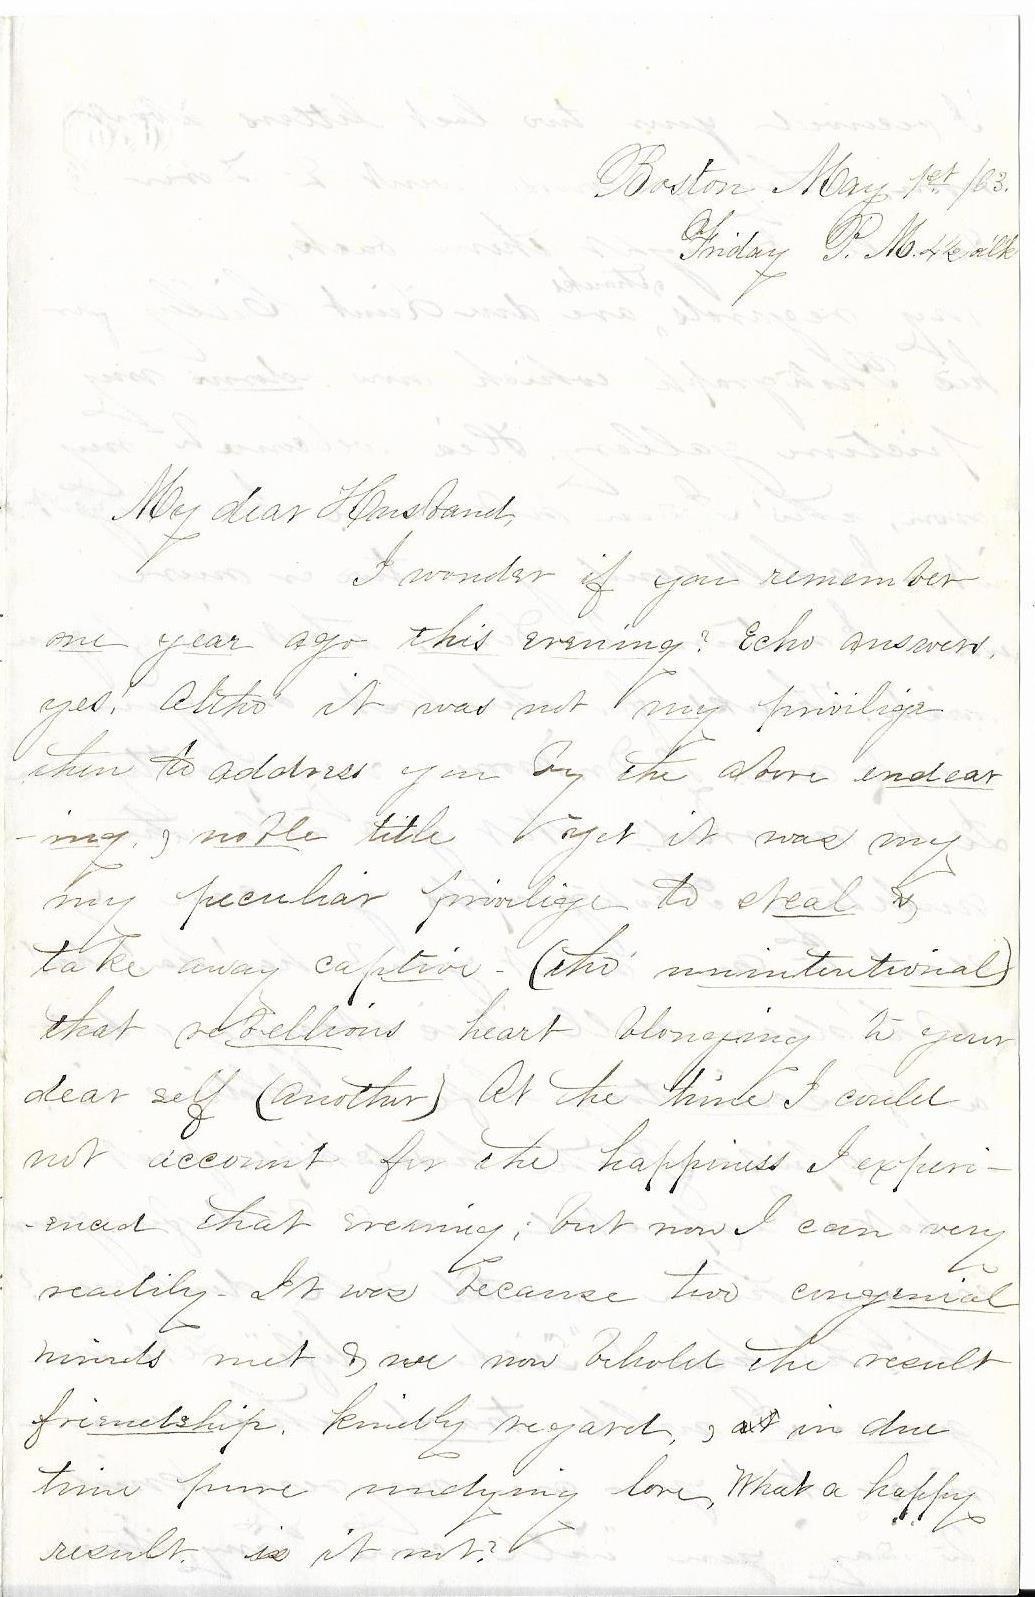 Boston May 1st /63.
Friday P. M. 4½ o'clk
My dear Husband,
I wonder if you remember
one year ago this evening? Echo answers,
yes! Altho' it was not my privilige
then to address you by the above endear
-ing, & noble title yet it was my
my peculiar privilige to steal &
take away captive - (tho' unintentional)
that rebellious heart blonging to your
dear self (another) At the time I could
not account for the happiness I experi-
-enced that evening; but now I can very
readily - It was because two congenial
minds met & we now behold the result
friendship, kindly regard, & in due
time pure undying love, What a happy
result. is it not?